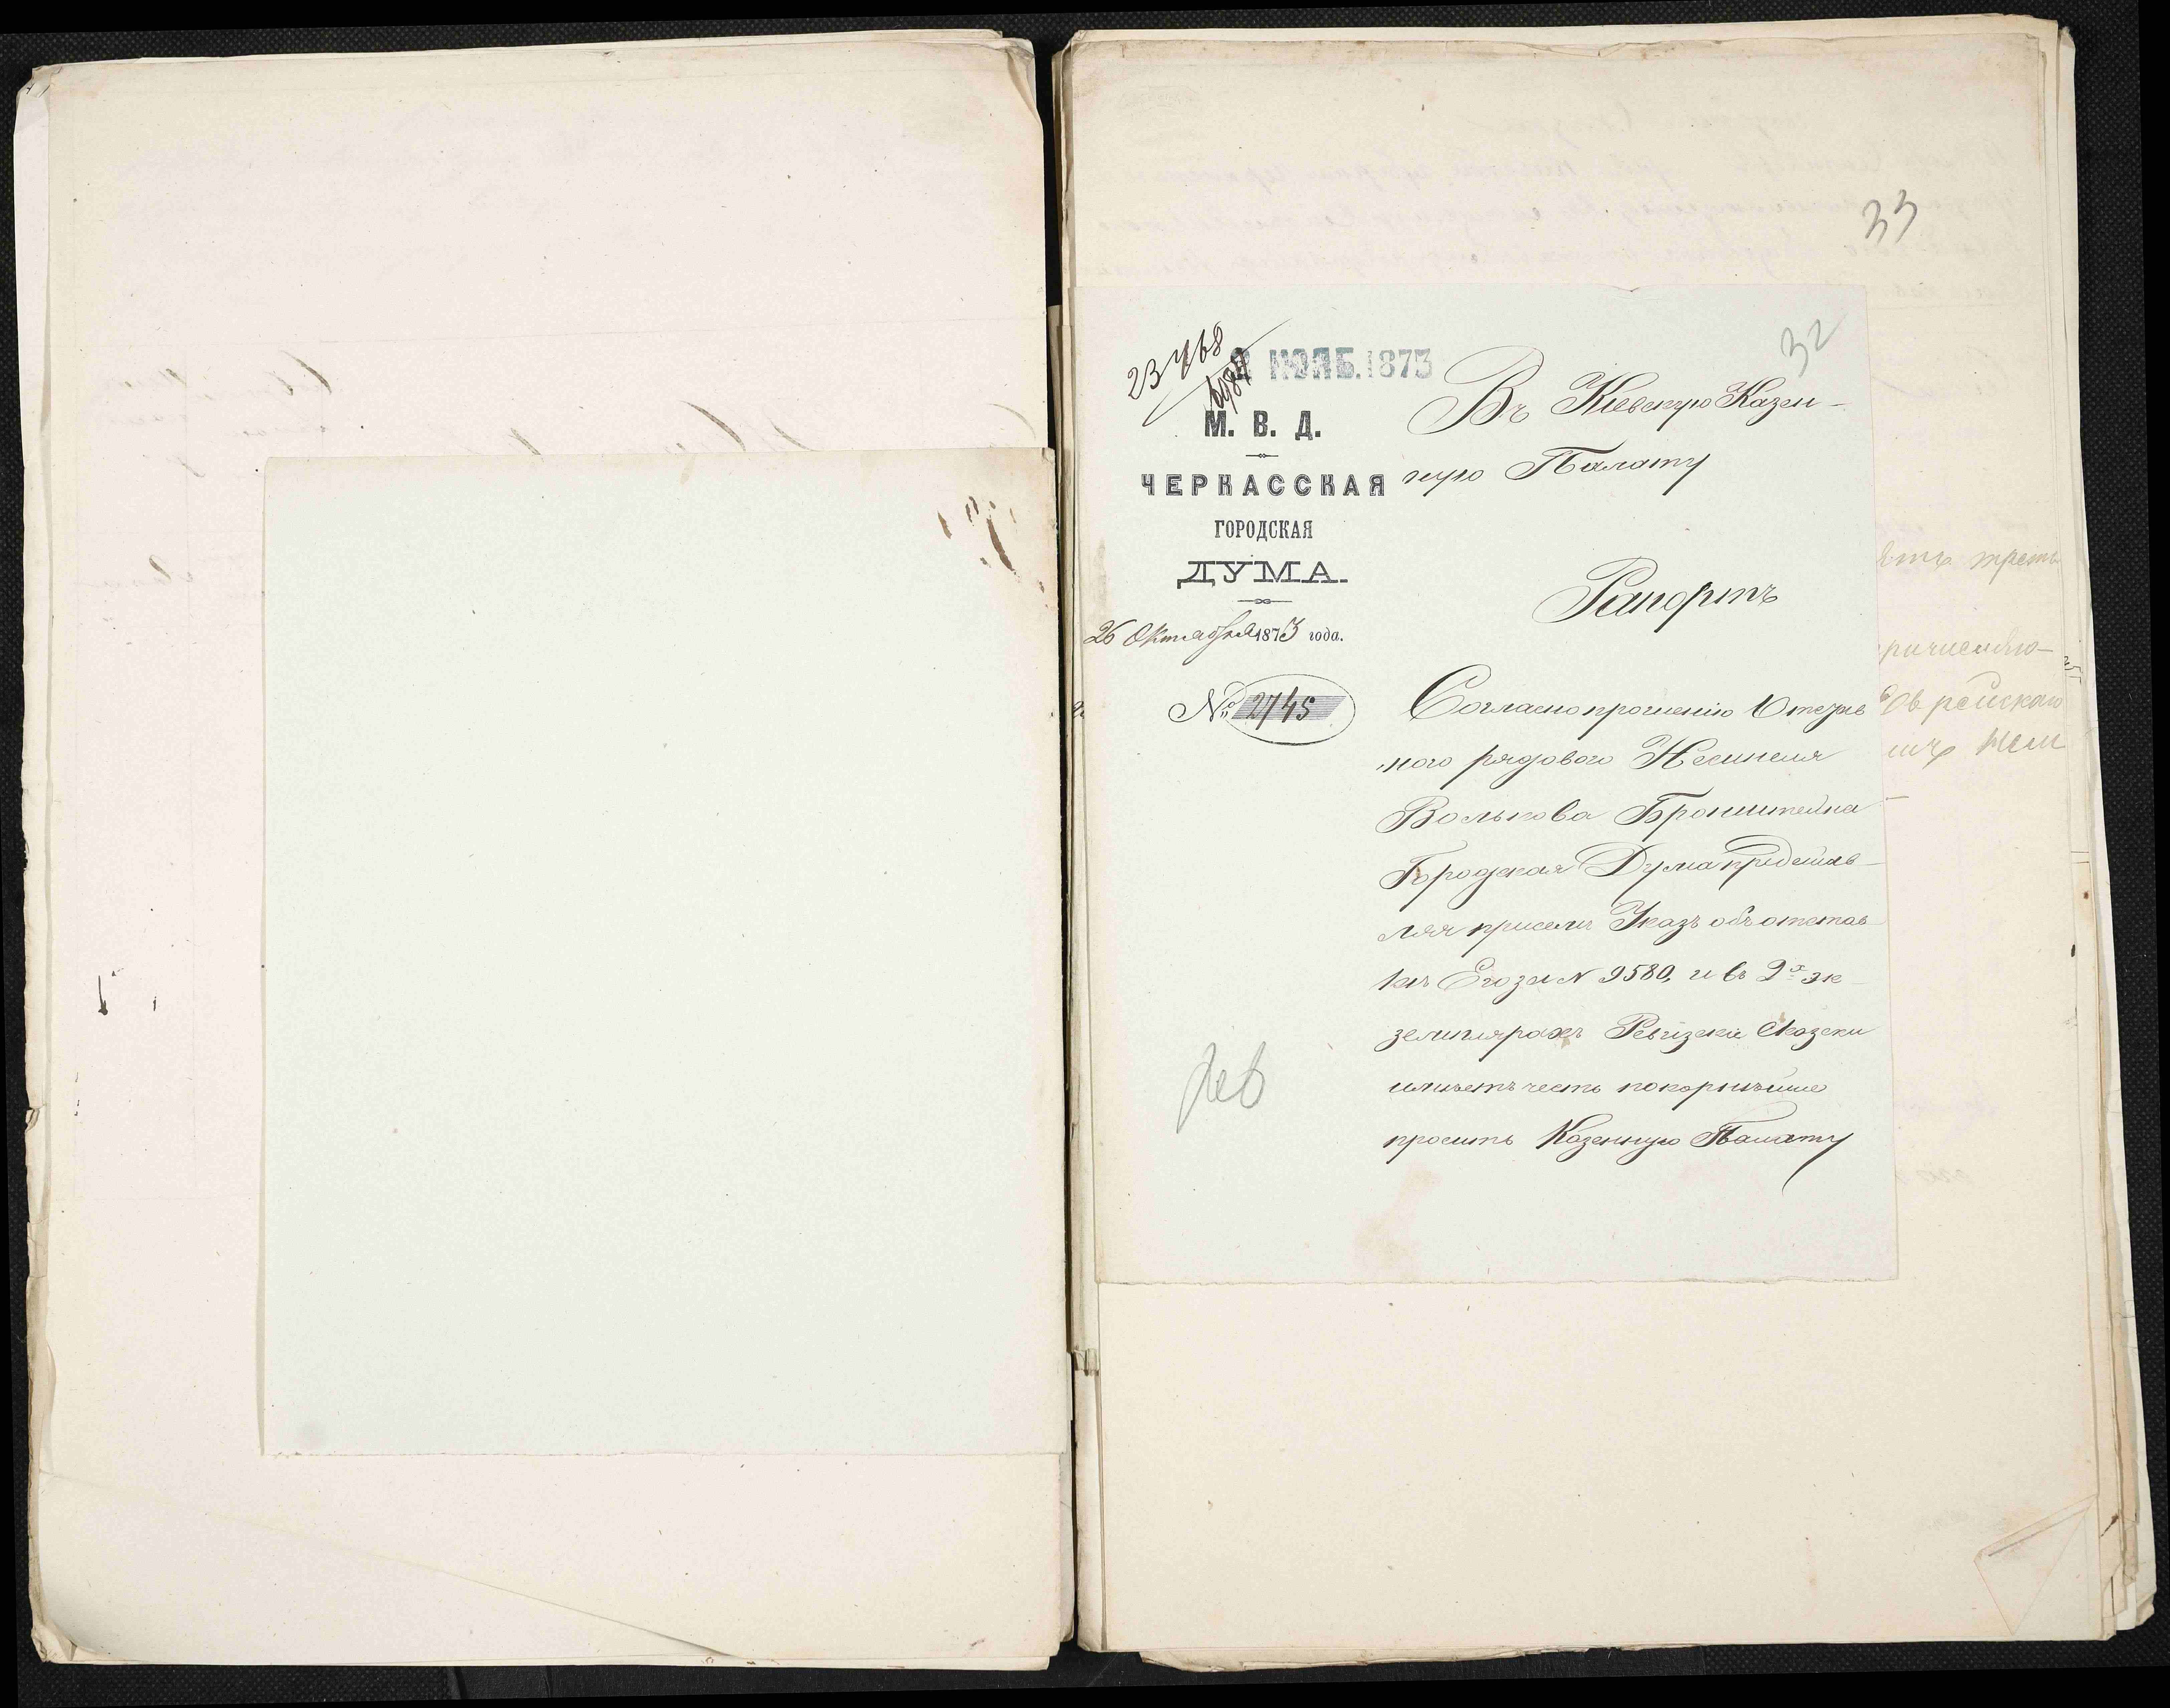 33
32
23768
2 НОЯБ. 1873
М. В. Д.
ЧЕРКАССКАЯ
ГОРОДСКАЯ
ДУМА.
26 Октября 1873 года.
№ 2745
Въ Кіевскую Казен-
ную Палату
Рапортъ
Согласно прошенію Отстав
ного рядового
Волькова Бронштейна
Городская Дума представ-
ляя при семъ Указъ объ отстав
кѣ Его за N 9580, и въ 2х эк-
земплярахъ Ревизскіе Сказски
имѣетъ честь покорнѣйше
просить Казенную Палату
треть
ричисляю-
Еврейскаго